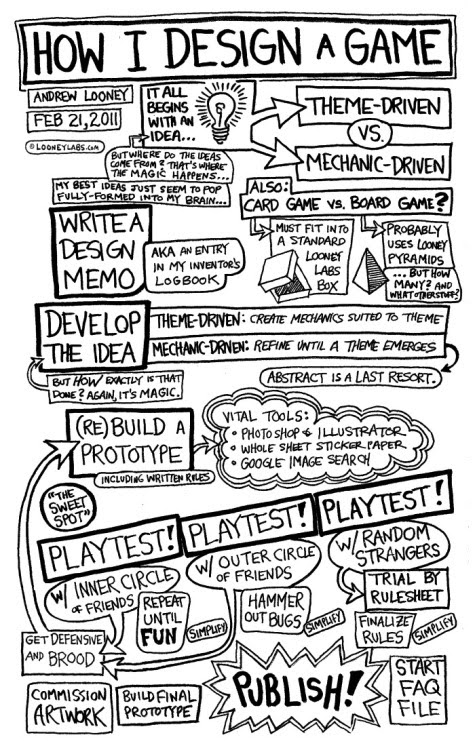 HOW I DESIGN A GAME
ANDREW LOONEY
FEB 21, 2011
© LOONEYLABS.COM
IT ALL
BEGINS
WITH AN
IDEA...
THEME-DRIVEN
VS.
MECHANIC-DRIVEN
BUT WHERE DO THE IDEAS
COME FROM? THAT'S WHERE
THE MAGIC HAPPENS...
MY BEST IDEAS JUST SEEM TO POP
FULLY-FORMED INTO MY BRAIN...
ALSO:
CARD GAME VS. BOARD GAME?
MUST FIT INTO
A STANDARD
LOONEY
LABS
BOX
PROBABLY
USES LOONEY
PYRAMIDS
... BUT HOW
MANY? AND
WHAT OTHER STUFF?
WRITE A
DESIGN
MEMO
AKA AN ENTRY
IN MY INVENTOR'S
LOGBOOK
DEVELOP
THE IDEA
THEME-DRIVEN: CREATE MECHANICS SUITED TO THEME
MECHANIC-DRIVEN: REFINE UNTIL A THEME EMERGES
BUT HOW EXACTLY IS THAT
DONE? AGAIN, IT'S MAGIC.
ABSTRACT IS A LAST RESORT.
(RE) BUILD A
PROTOTYPE
INCLUDING WRITTEN RULES
VITAL TOOLS:
• PHOTOSHOP & ILLUSTRATOR
• WHOLE SHEET STICKER PAPER
• GOOGLE IMAGE SEARCH
"THE
SWEET
SPOT"
PLAYTEST!
PLAYTEST!
PLAYTEST!
W/ INNER CIRCLE
OF FRIENDS
W/ OUTER CIRCLE
OF FRIENDS
W/ RANDOM
STRANGERS
REPEAT
UNTIL
FUN
SIMPLIFY
HAMMER
OUT BUGS
SIMPLIFY
TRIAL BY
RULESHEET
FINALIZE
RULES
SIMPLIFY
GET DEFENSIVE
AND BROOD
COMMISSION
ARTWORK
BUILD FINAL
PROTOTYPE
PUBLISH!
START
FAQ
FILE